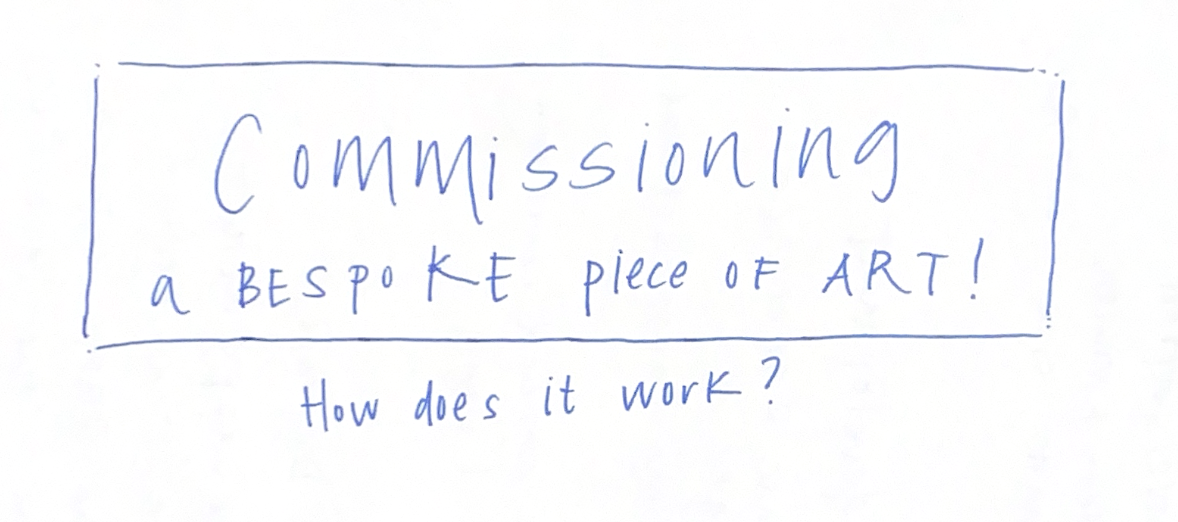 Commissioning
a BESPOKE piece OF ART!
How does it work?